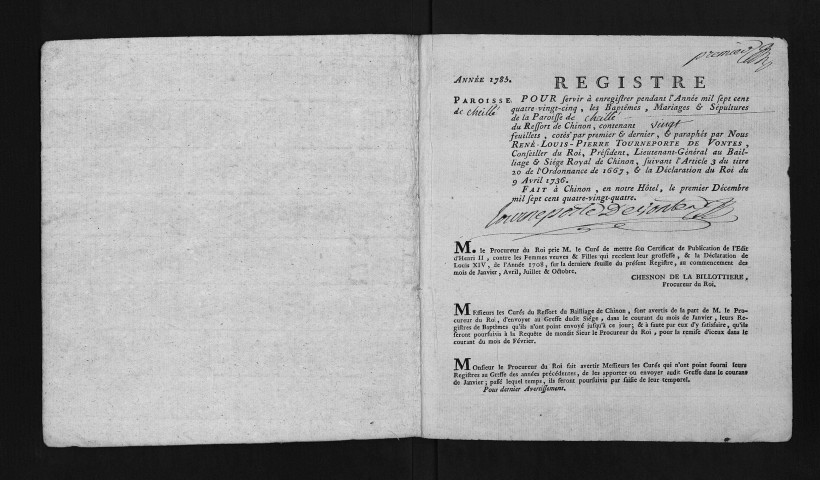 premier
ANNÉE 1785.
REGISTRE
PAROISSE
de cheillé
POUR servir à enregistrer pendant l'Année mil sept cent
quatre-vingt-cinq, les Baptêmes, Mariages & Sépultures
de la Paroisse de cheillé
du Ressort de Chinon, contenant vingt
feuillets, cotés par premier & dernier, & paraphés par Nous
RENÉ-LOUIS-PIERRE TOURNEPORTE DE VONTES,
Conseiller du Roi, Président, Lieutenant-Général au Bail-
liage & Siége Royal de Chinon, suivant l'Article 3 du titre
20 de l'Ordonnance de 1667, & la Déclaration du Roi du
9 Avril 1736.
FAIT à Chinon, en notre Hôtel, le premier Décembre
mil sept cent quatre-vingt-quatre.
Tourneporte De vontes
M. le Procureur du Roi prie M. le Curé de mettre son Certificat de Publication de l'Edit
d'Henri II, contre les Femmes veuves & Filles qui recelent leur grossesse, & la Déclaration de
Louis XIV, de l'Année 1708, sur la derniere feuille du présent Registre, au commencement des
mois de Janvier, Avril, Juillet & Octobre.
CHESNON DE LA BILLOTTIERE,
Procureur du Roi.
MEssieurs les Curés du Ressort du Bailliage de Chinon, sont avertis de la part de M. le Pro-
cureur du Roi, d'envoyer au Greffe dudit Siége, dans le courant du mois de Janvier, leurs Re-
gistres de Baptêmes qu'ils n'ont point envoyé jusqu'à ce jour; & à faute par eux d'y satisfaire, qu'ils
seront poursuivis à la Requête de mondit Sieur le Procureur du Roi, pour la remise d'iceux dans le
courant du mois de Février.
MOnsieur le Procureur du Roi fait avertir Messieurs les Curés qui n'ont point fourni leurs
Registres au Greffe des années précédentes, de les apporter ou envoyer audit Greffe dans le courant
de Janvier; passé lequel temps, ils seront poursuivis par saisie de leur temporel.
Pour dernier Avertissement.